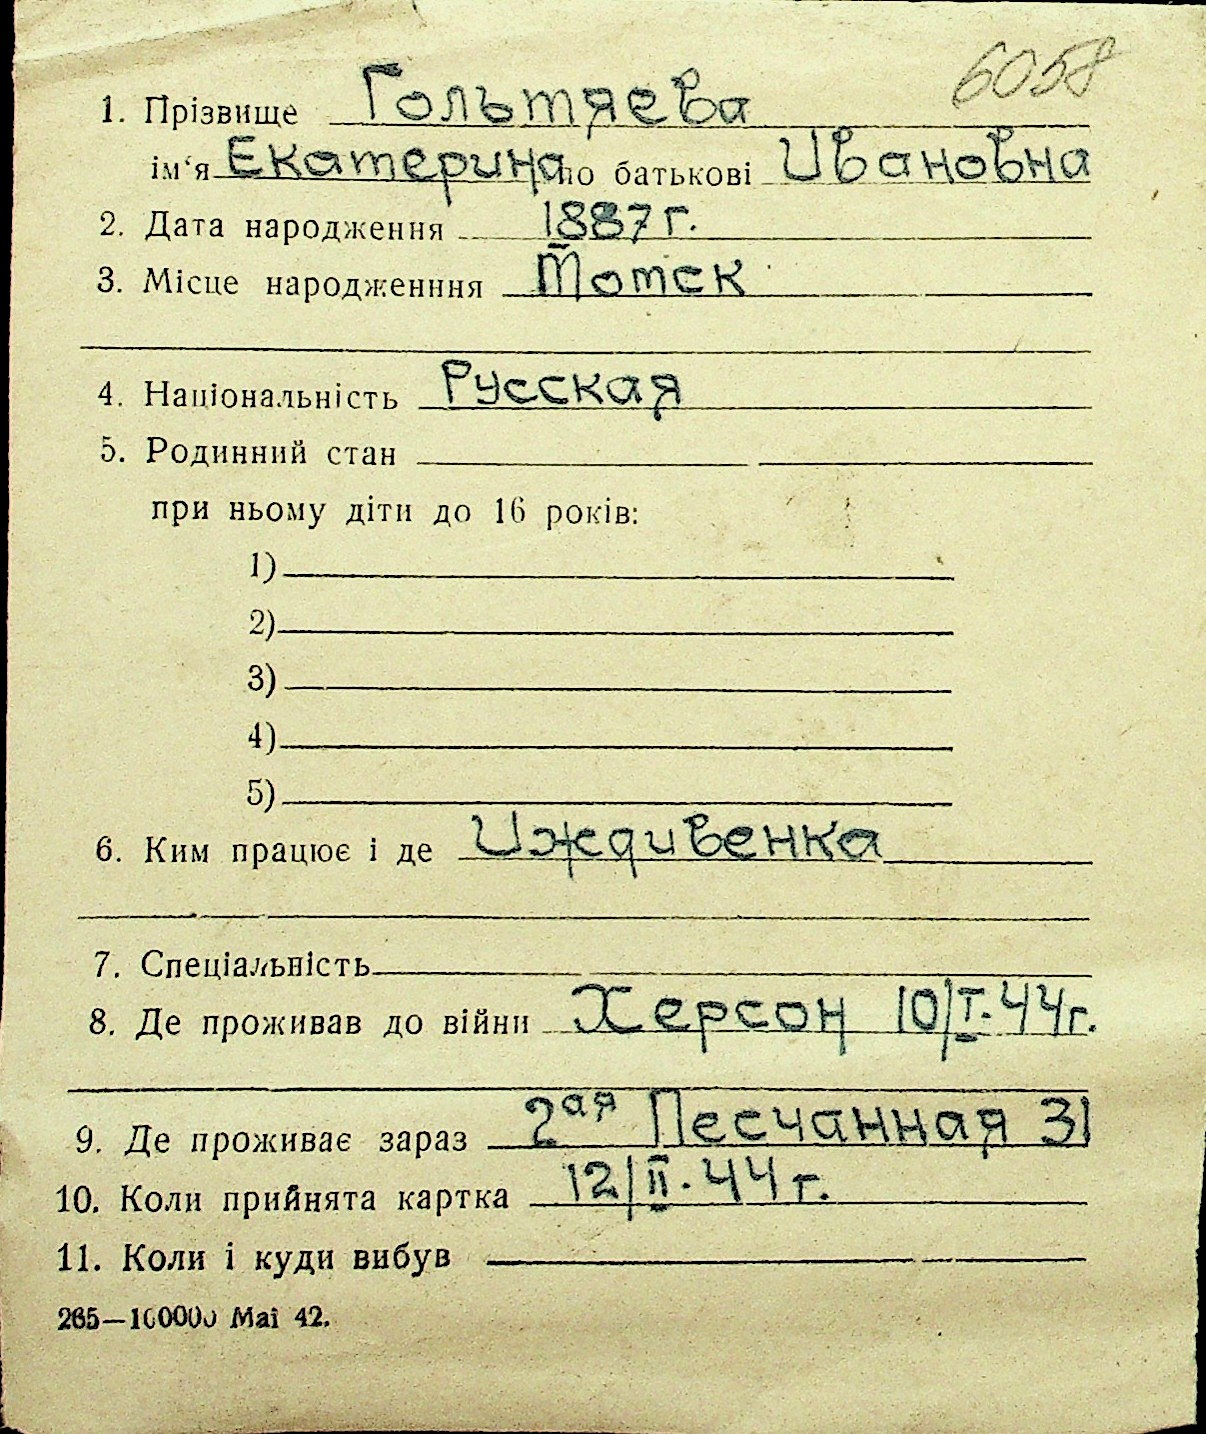 6058
1. Прізвище Гольтяева
ім'я Екатерина по батькові Ивановна
2. Дата народження 1887 г.
3. Місце народженння Томск
4. Національність Русская
5. Родинний стан
при ньому діти до 16 років:
1)
2)
3)
4)
5)
6. Ким працює і де Иждивенка
7. Спеціальність
8. Де проживав до війни Херсон 10/I.44г.
9. Де проживає зараз 2ая Песчанная 31
10. Коли прийнята картка 12/II.44г.
11. Коли і куди вибув
265—100000 Mai 42.